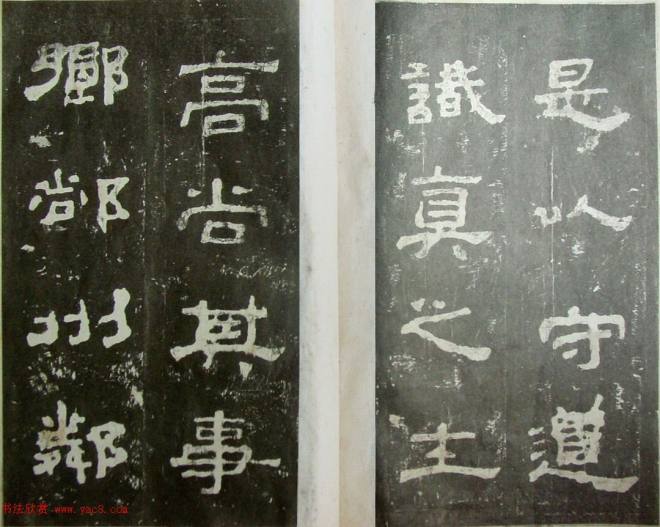 是以守道
識真之主
高尚其事
鄉黨州鄰
书法欣赏 www.yac8.com